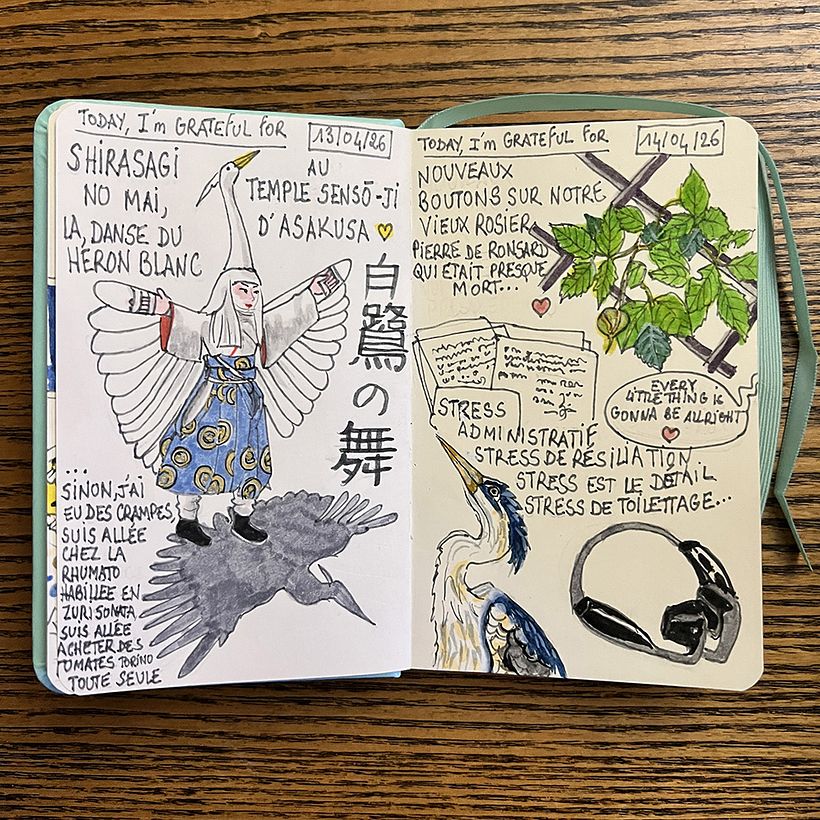 TODAY, I'm GRATEFUL FOR
13/04/26
SHIRASAGI
NO MAI,
LA DANSE DU
HERON BLANC
AU
TEMPLE SENSŌ-JI
D'ASAKUSA
白鷺の舞
...
SINON, J'AI
EU DES CRAMPES,
SUIS ALLÉE
CHEZ LA
RHUMATO
HABILLEE EN
ZURI SONATA
SUIS ALLÉE
ACHETER DES
TOMATES TORINO
TOUTE SEULE
TODAY, I'm GRATEFUL FOR
14/04/26
NOUVEAUX
BOUTONS SUR NOTRE
VIEUX ROSIER
PIERRE DE RONSARD
QUI ETAIT PRESQUE
MORT...
EVERY
LITTLE THING IS
GONNA BE ALLRIGHT
STRESS
ADMINISTRATIF
STRESS DE RÉSILIATION
STRESS EST LE DÉTAIL
STRESS DE TOILETTAGE...